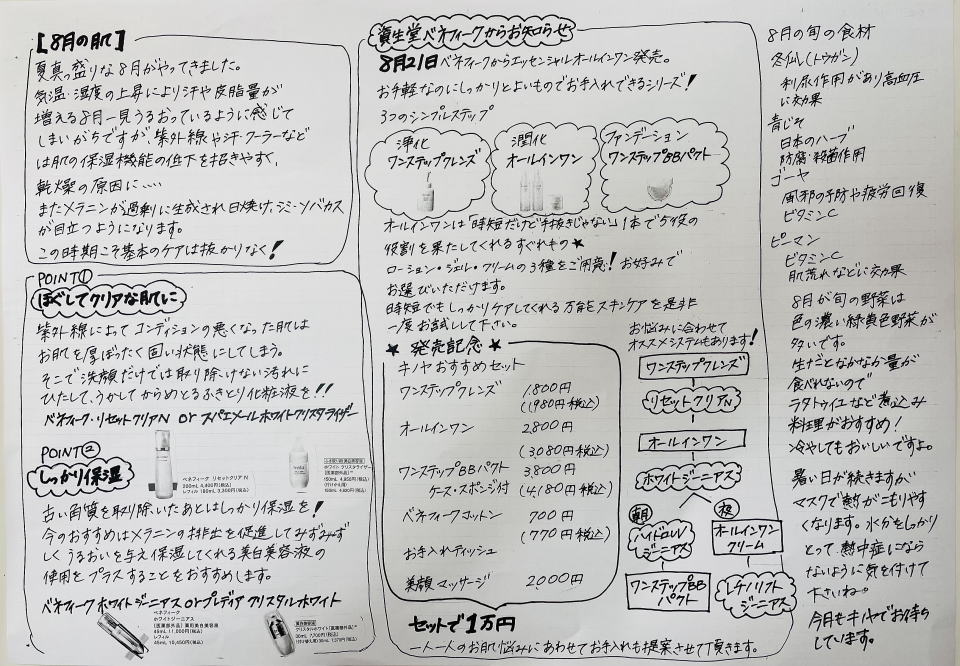 [8月の肌]
夏真っ盛りな8月がやってきました。
気温・湿度の上昇により汗や皮脂量が
増える8月一見うるおっているように感じて
しまいがちですが、紫外線や汗・クーラーなど
は肌の保湿機能の低下を招きやすく、
乾燥の原因に....
またメラニンが過剰に生成され日焼け、シミ・ソバカス
が目立つようになります。
この時期こそ基本のケアは抜かりなく!
POINT①
ほぐしてクリアな肌に
紫外線によってコンディションの悪くなった肌は
お肌を厚ぼったく固い状態にしてしまう。
そこで洗顔だけでは取り除けない汚れに
ひたして、うかしてからめとるふきとり化粧液を!!
ベネフィーク・リセットクリアN or スパエメールホワイトクリスタライザー
POINT②
しっかり保湿
ベネフィーク リセットクリア N
200mL 4,400円(税込)
レフィル 180mL 3,300円(税込)
ホワイト クリスタライザー
[医薬部外品]
150mL 4,950円(税込)
(付け替え用)
150mL 4,620円(税込)
古い角質を取り除いたあとはしっかり保湿を!
今のおすすめはメラニンの排出を促進してみずみず
しくうるおいを与え保湿してくれる美白美容液の
使用をプラスすることをおすすめします。
ベネフィークホワイトジーニアスorプレディア クリスタルホワイト
ベネフィーク
ホワイトジーニアス
[医薬部外品] 薬用美白美容液
45mL 11,000円(税込)
レフィル
45mL 10,450円(税込)
クリスタルホワイト[医薬部外品]
30mL 7,700円(税込)
資生堂ベネフィークからお知らせ
8月21日ベネフィークからエッセンシャルオールインワン発売。
お手軽なのにしっかりとよいものでお手入れできるシリーズ!
3つのシンプルステップ
浄化
ワンステップクレンズ
潤化
オールインワン
ファンデーション
ワンステップBBパクト
オールインワンは「時短だけど手抜きじゃない」1本で5役の
役割を果たしてくれるすぐれもの★
ローション・ジェル・クリームの3種をご用意!お好みで
お選びいただけます。
時短でもしっかりケアしてくれる万能スキンケアを是非
一度お試しして下さい。
★発売記念★
キノヤおすすめセット
ワンステップクレンズ 1.800円
(1980円税込)
オールインワン 2800円
(3080円税込)
ワンステップBBパクト 3800円
ケース・スポンジ付 (4,180円税込)
ベネフィークコットン 700円
(770円税込)
お手入れティッシュ
美顔マッサージ 2000円
セットで1万円
お悩みに合わせて
オススメシステムもあります!
ワンステップクレンズ
リセットクリアN
オールインワン
ホワイトジーニアス
朝
ハイドロUV
ジーニアス
ワンステップBB
パクト
夜
オールインワン
クリーム
レチノリフト
ジーニアス
一人一人のお肌悩みにあわせてお手入れも提案させて頂きます。
8月の旬の食材
冬仏(トウガン)
利尿作用があり高血圧
に効果
青じそ
日本のハーブ
防腐・殺菌作用
ゴーヤ
風邪の予防や疲労回復
ビタミンC
ピーマン
ビタミンC
肌荒れなどに効果
8月が旬の野菜は
色の濃い緑黄色野菜が
多いです。
生だとなかなか量が
食べれないので
ラタトゥイユなど煮込み
料理がおすすめ!
冷やしてもおいしいですよ。
暑い日が続きますが、
マスクで熱がこもりやす
くなります。水分をしっかり
とって、熱中症になら
ないように気を付けて
下さいね。
今月もキノヤでお待ち
しています。